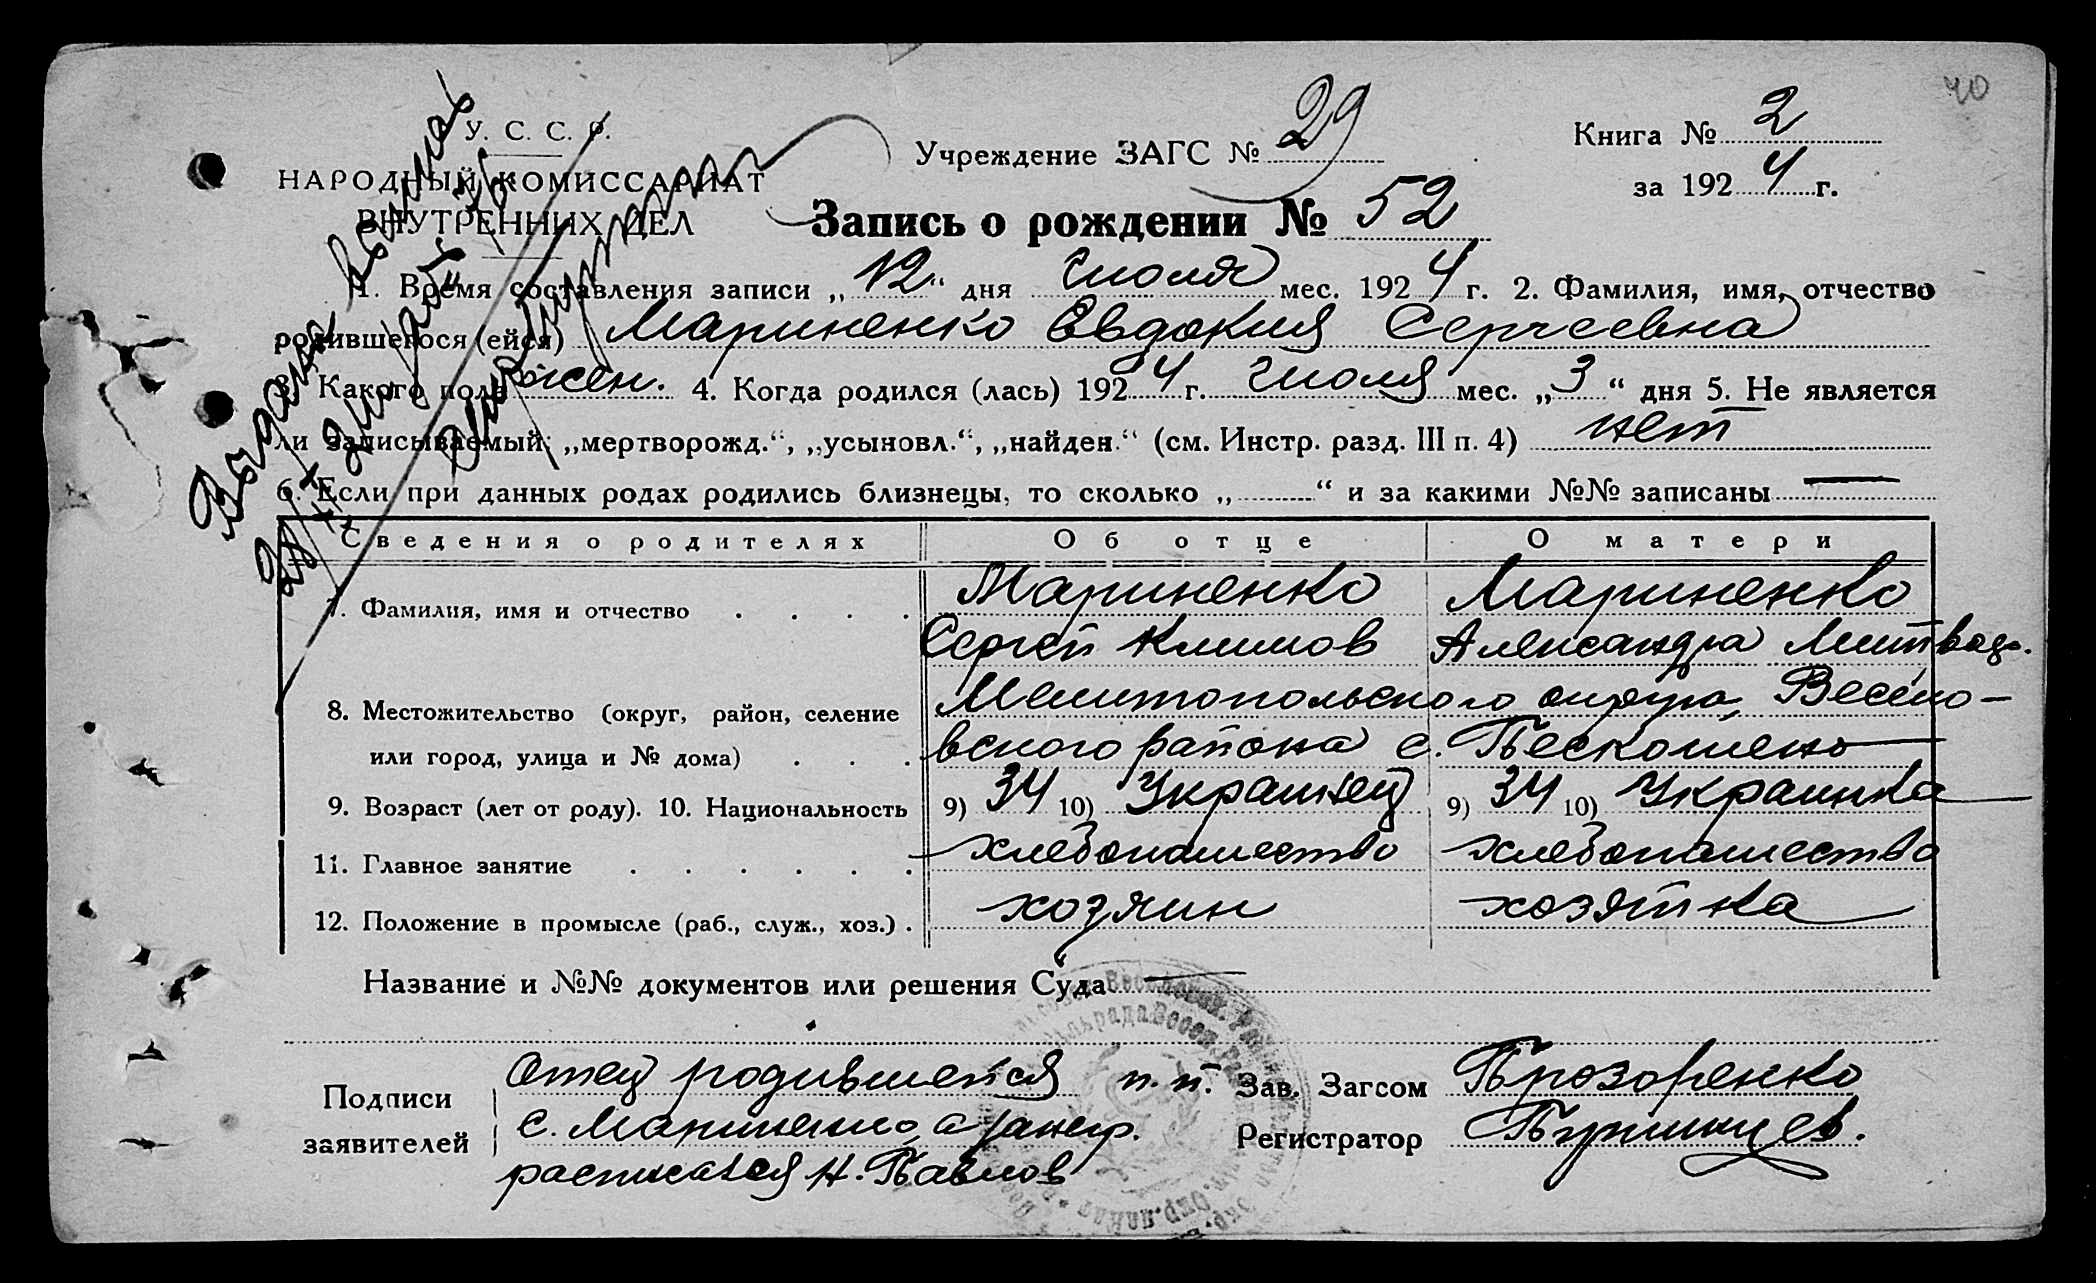 40
У. С. С. Р.
НАРОДНЫЙ КОМИССАРИАТ
ВНУТРЕННИХ ДЕЛ
Учреждение ЗАГС № 29
Книга № 2
за 1924 г.
Запись о рождении № 52
1. Время составления записи „12“ дня Июля мес. 1924 г. 2. Фамилия, имя, отчество
родившегося (ейся) Мариненко Евдокия Сергеевна
3. Какого пола жен. 4. Когда родился (лась) 1924 г. Июля мес. „3“ дня 5. Не является
ли записываемый: „мертворожд.“, „усыновл.“, „найден.“ (см. Инстр. разд. III п. 4) нет
6. Если при данных родах родились близнецы, то сколько „ “ и за какими №№ записаны —
Сведения о родителях Об отце О матери
7. Фамилия, имя и отчество Мариненко Мариненко
Сергей Климов Александра
8. Местожительство (округ, район, селение Мелитопольского округа, Весело-
или город, улица и № дома) вского района с.
9. Возраст (лет от роду). 10. Национальность 9) 34 10) Украинец 9) 34 10) Украинка
11. Главное занятие хлебопашество хлебопашество
12. Положение в промысле (раб., служ., хоз.) хозяин хозяйка
Название и №№ документов или решения Суда —
Подписи заявителей
Отец родившейся п.п.
С. Мариненко, а
расписался Н. Павлов
Зав. Загсом Прозоренко
Регистратор
Выдана